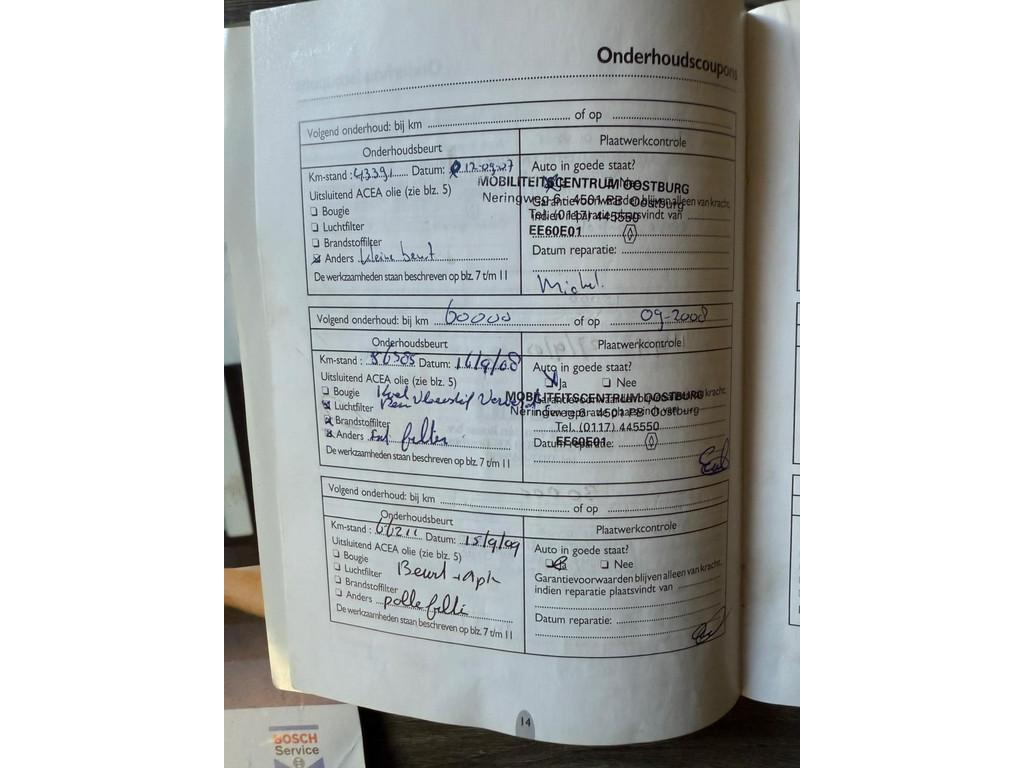 Onderhoudscoupons
Volgend onderhoud: bij km ........ of op ........
Onderhoudsbeurt
Plaatwerkcontrole
Km-stand : 43391 Datum: 12-09-07
Auto in goede staat?
Ja Nee
Uitsluitend ACEA olie (zie blz. 5)
MOBILITEITSCENTRUM OOSTBURG
Neringweg 6 4501 PB Oostburg
Garantievoorwaarden blijven alleen van kracht,
indien reparatie plaatsvindt van
Tel. (0117) 445550
EE60E01
Bougie
Luchtfilter
Brandstoffilter
Anders kleine beurt
Datum reparatie:
De werkzaamheden staan beschreven op blz. 7 t/m 11
Volgend onderhoud: bij km 60000 of op 09-2008
Onderhoudsbeurt
Plaatwerkcontrole
Km-stand : 56385 Datum: 16/9/08
Auto in goede staat?
Ja Nee
Uitsluitend ACEA olie (zie blz. 5)
Bougie
MOBILITEITSCENTRUM OOSTBURG
Neringweg 6 4501 PB Oostburg
Tel. (0117) 445550
EE60E01
Luchtfilter
Brandstoffilter
Anders
Datum reparatie:
De werkzaamheden staan beschreven op blz. 7 t/m 11
Volgend onderhoud: bij km ........ of op ........
Onderhoudsbeurt
Plaatwerkcontrole
Km-stand : 66211 Datum: 15/9/09
Auto in goede staat?
Ja Nee
Uitsluitend ACEA olie (zie blz. 5)
Garantievoorwaarden blijven alleen van kracht,
indien reparatie plaatsvindt van
Bougie
Luchtfilter Beurt + Apk
Brandstoffilter
Anders
Datum reparatie:
De werkzaamheden staan beschreven op blz. 7 t/m 11
14
BOSCH
Service